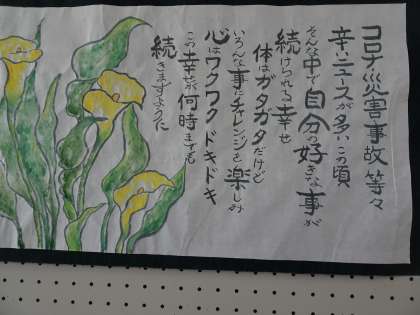 コロナ災害事故等々
辛いニュースが多いこの頃
そんな中で自分の好きな事が
続けられる幸せ
体はガタガタだけど
いろんな事にチャレンジを楽しみ
心はワクワクドキドキ
この幸せが何時までも
続きますように